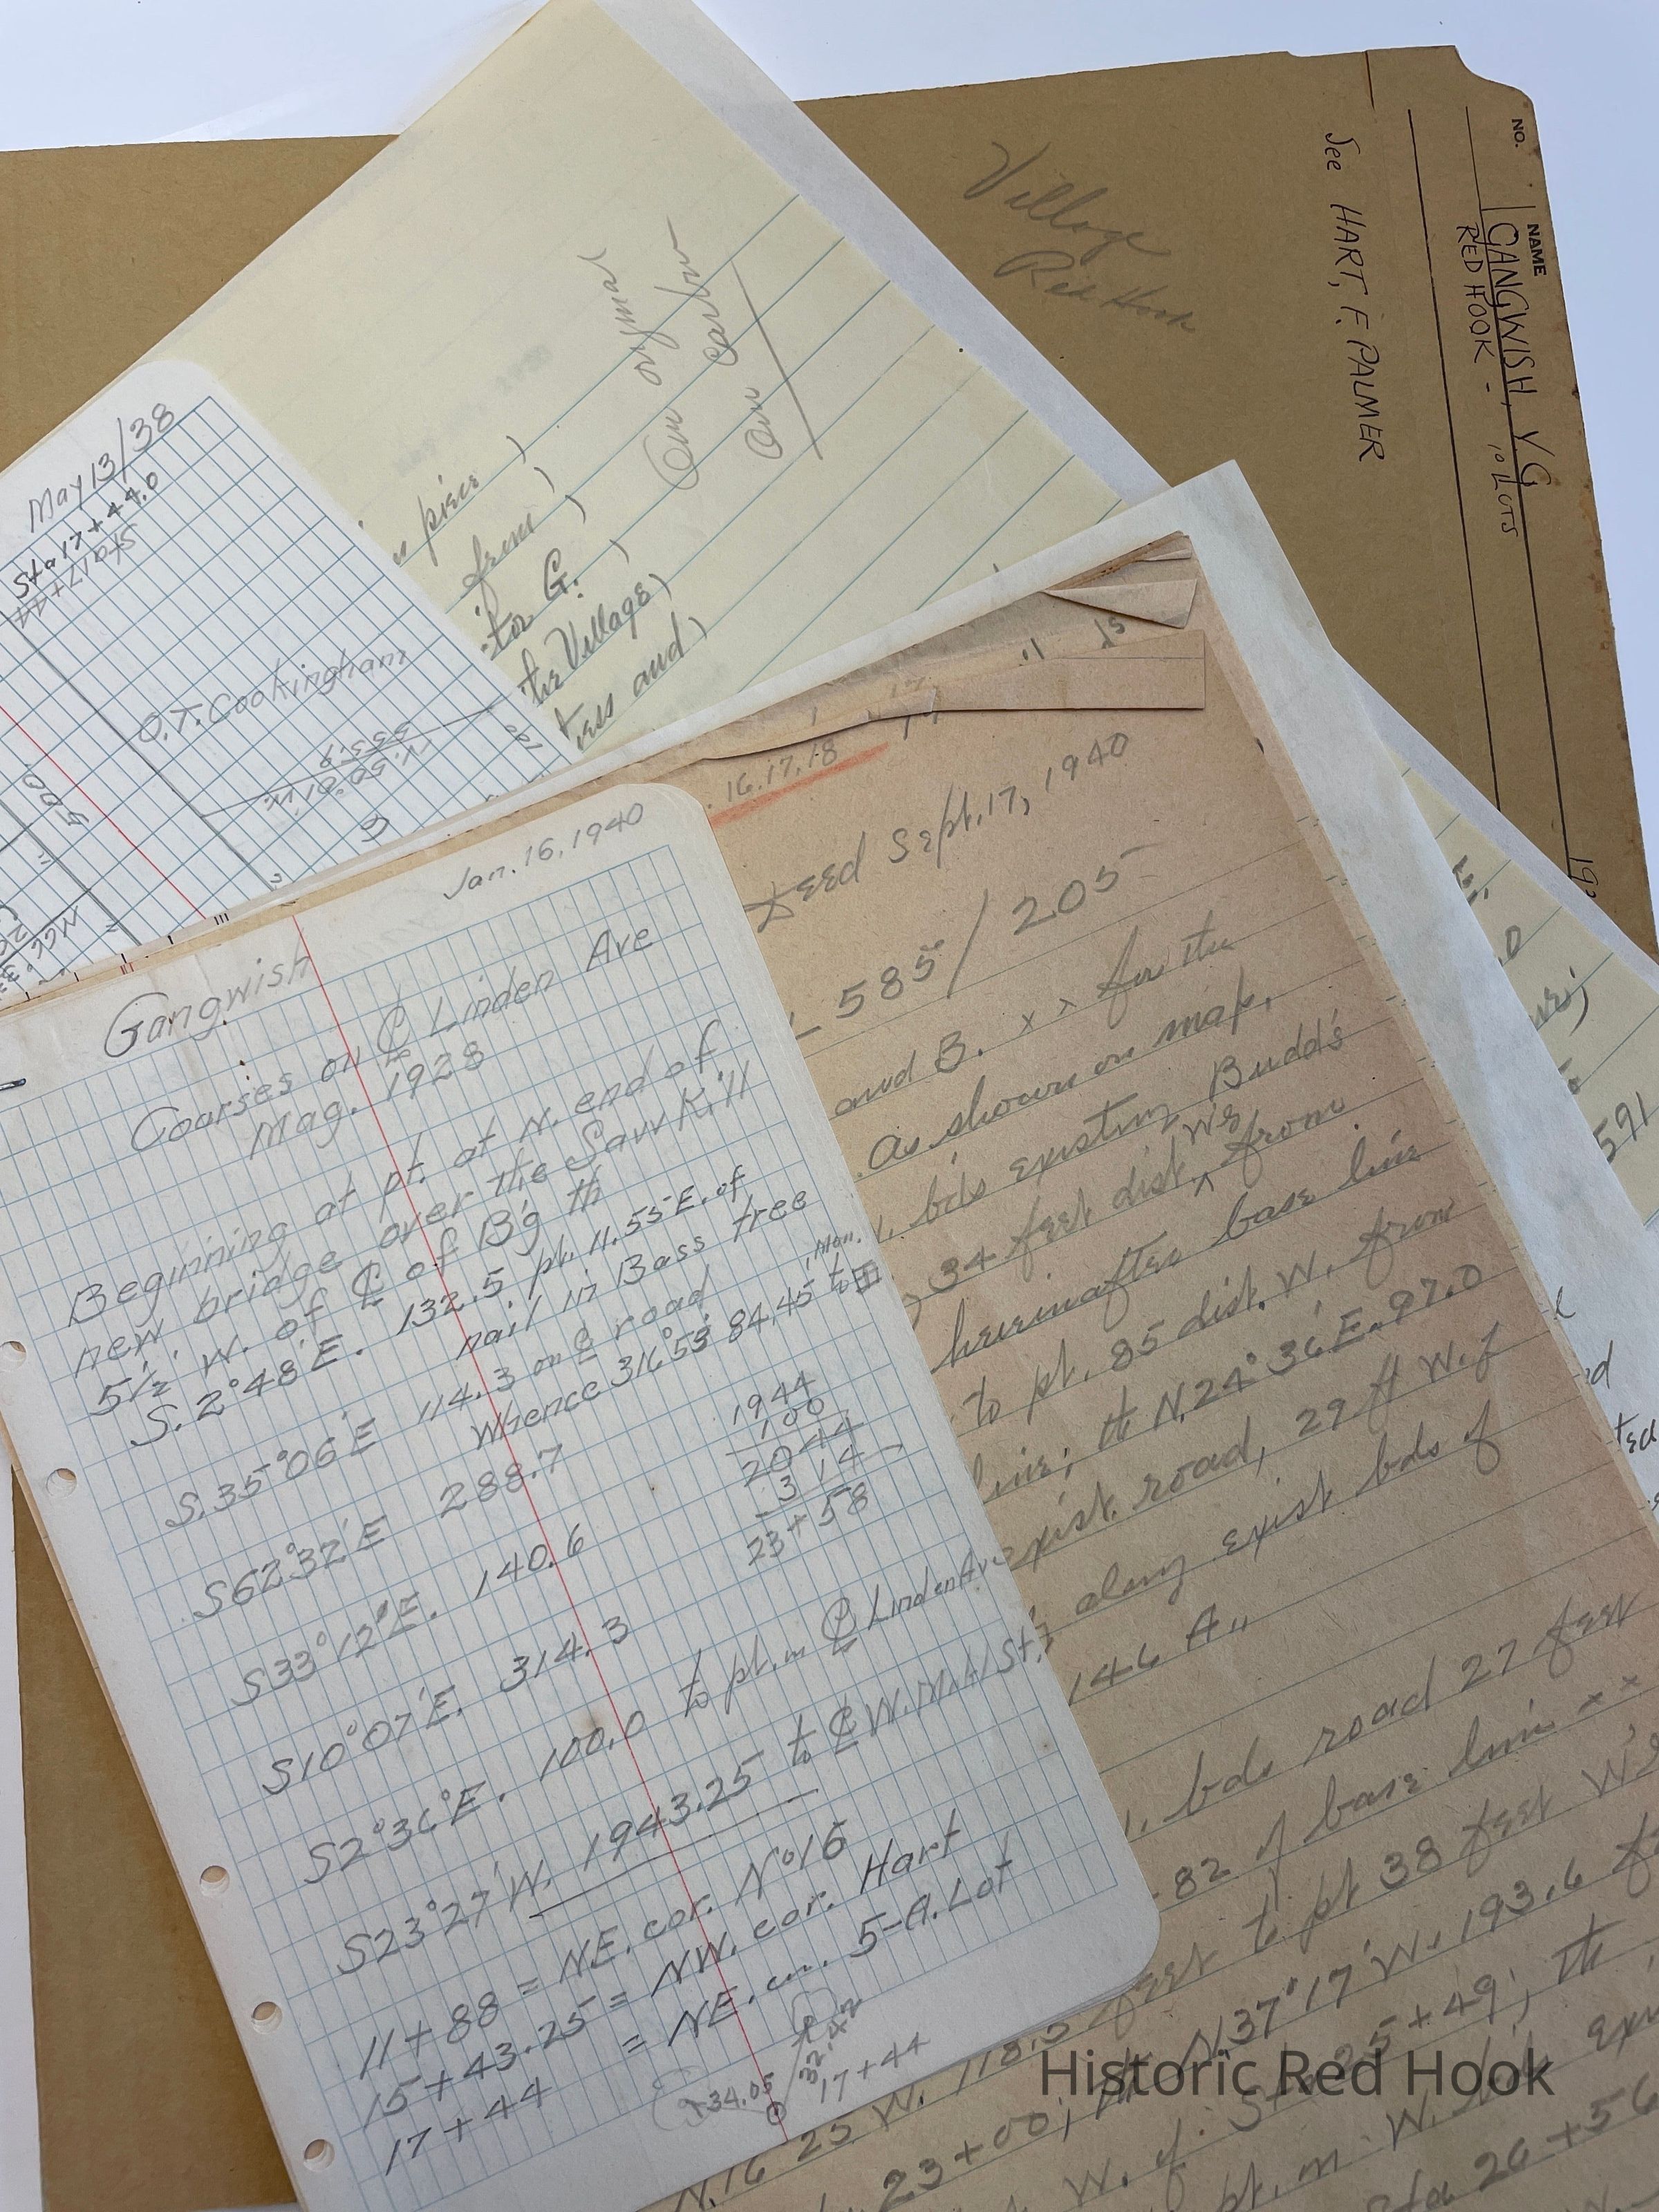 NO. NAME
GANGWISH, V G
RED HOOK - 10 LOTS
See HART, F. PALMER
Village
Red Hook
One original
One Carbon
piece )
from )
tor G. )
the Village )
tess and )
May 13/38
Sta 17+44.0
Sta 17+44
O.T. Cookingham
553.9
100
500
16.17.18
Deed Sept. 17, 1940
585/205
and B. x x for the
As shown on map.
bds existing Budd's
34 feet dist W's from
hereinafter base line
to pt. 85 dist. W. from
line; th N.24°36'E. 97.0
exist. road, 29 ft W. of
along exist bds of
.146 A.
bds road 27 feet
82 of base line x x
feet to pt 38 feet W's
N. 16 25 W. 118.5
23+00; th N.37°17'W. 193.6
W. of Sta 25+49; th
pt. in W. bds
Sta 26+56
591
Jan. 16, 1940
Gangwish
Courses on ℄ Linden Ave
Mag. 1928
Beginning at pt. at N. end of
new bridge over the Saw Kill
5½' W. of ℄ of B'g th
S. 2°48'E. 132.5 pt. 11.55 E. of
nail in Bass tree
S. 35°06'E 114.3 on ℄ road
Whence 316°53' 84.45 to Mon.
S62°32'E 288.7
1944
100
2044
314
23+58
S33°12'E. 140.6
S10°07'E. 314.3
S2°36'E. 100.0 to pt. in ℄ Linden Ave
S23°27'W. 1943.25 to ℄ W. Mkt St.
11+88 = NE. cor. No 16
15+43.25 = NW. cor. Hart
17+44 = NE. cor. 5-A. Lot
934.05
32.42
17+44
Historic Red Hook